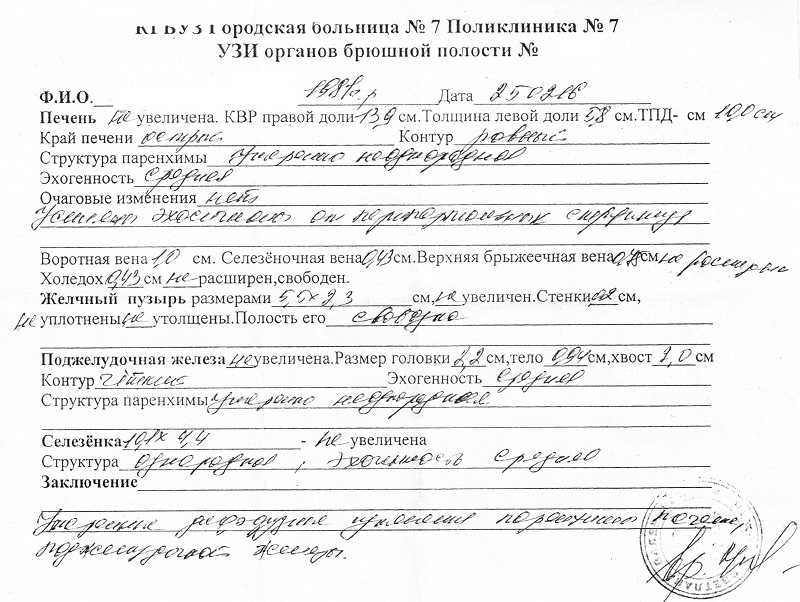 КГБУЗ Городская больница № 7 Поликлиника № 7
УЗИ органов брюшной полости №
Ф.И.О. 1981г.р Дата 250216
Печень не увеличена. КВР правой доли 13,9 см.Толщина левой доли 5,8 см.ТПД- см 10,0 см
Край печени острый Контур ровный
Структура паренхимы умеренно неоднородная
Эхогенность средняя
Очаговые изменения нет
Усилены эхосигналы от перипортальных структур
Воротная вена 1,0 см. Селезёночная вена 0,43см.Верхняя брыжеечная вена см не расширены
Холедох 0,43 см не расширен,свободен.
Желчный пузырь размерами 5,5х2,3 см, не увеличен.Стенки 0,2 см,
не уплотнены не утолщены.Полость его свободна
Поджелудочная железа не увеличена.Размер головки 2,2 см,тело 0,94 см,хвост 2,0 см
Контур чёткий Эхогенность средняя
Структура паренхимы умеренно неоднородная
Селезёнка 10,1х4,4 - не увеличена
Структура однородная, эхогенность средняя
Заключение
Умеренные диффузные изменения паренхимы печени,
поджелудочной железы.